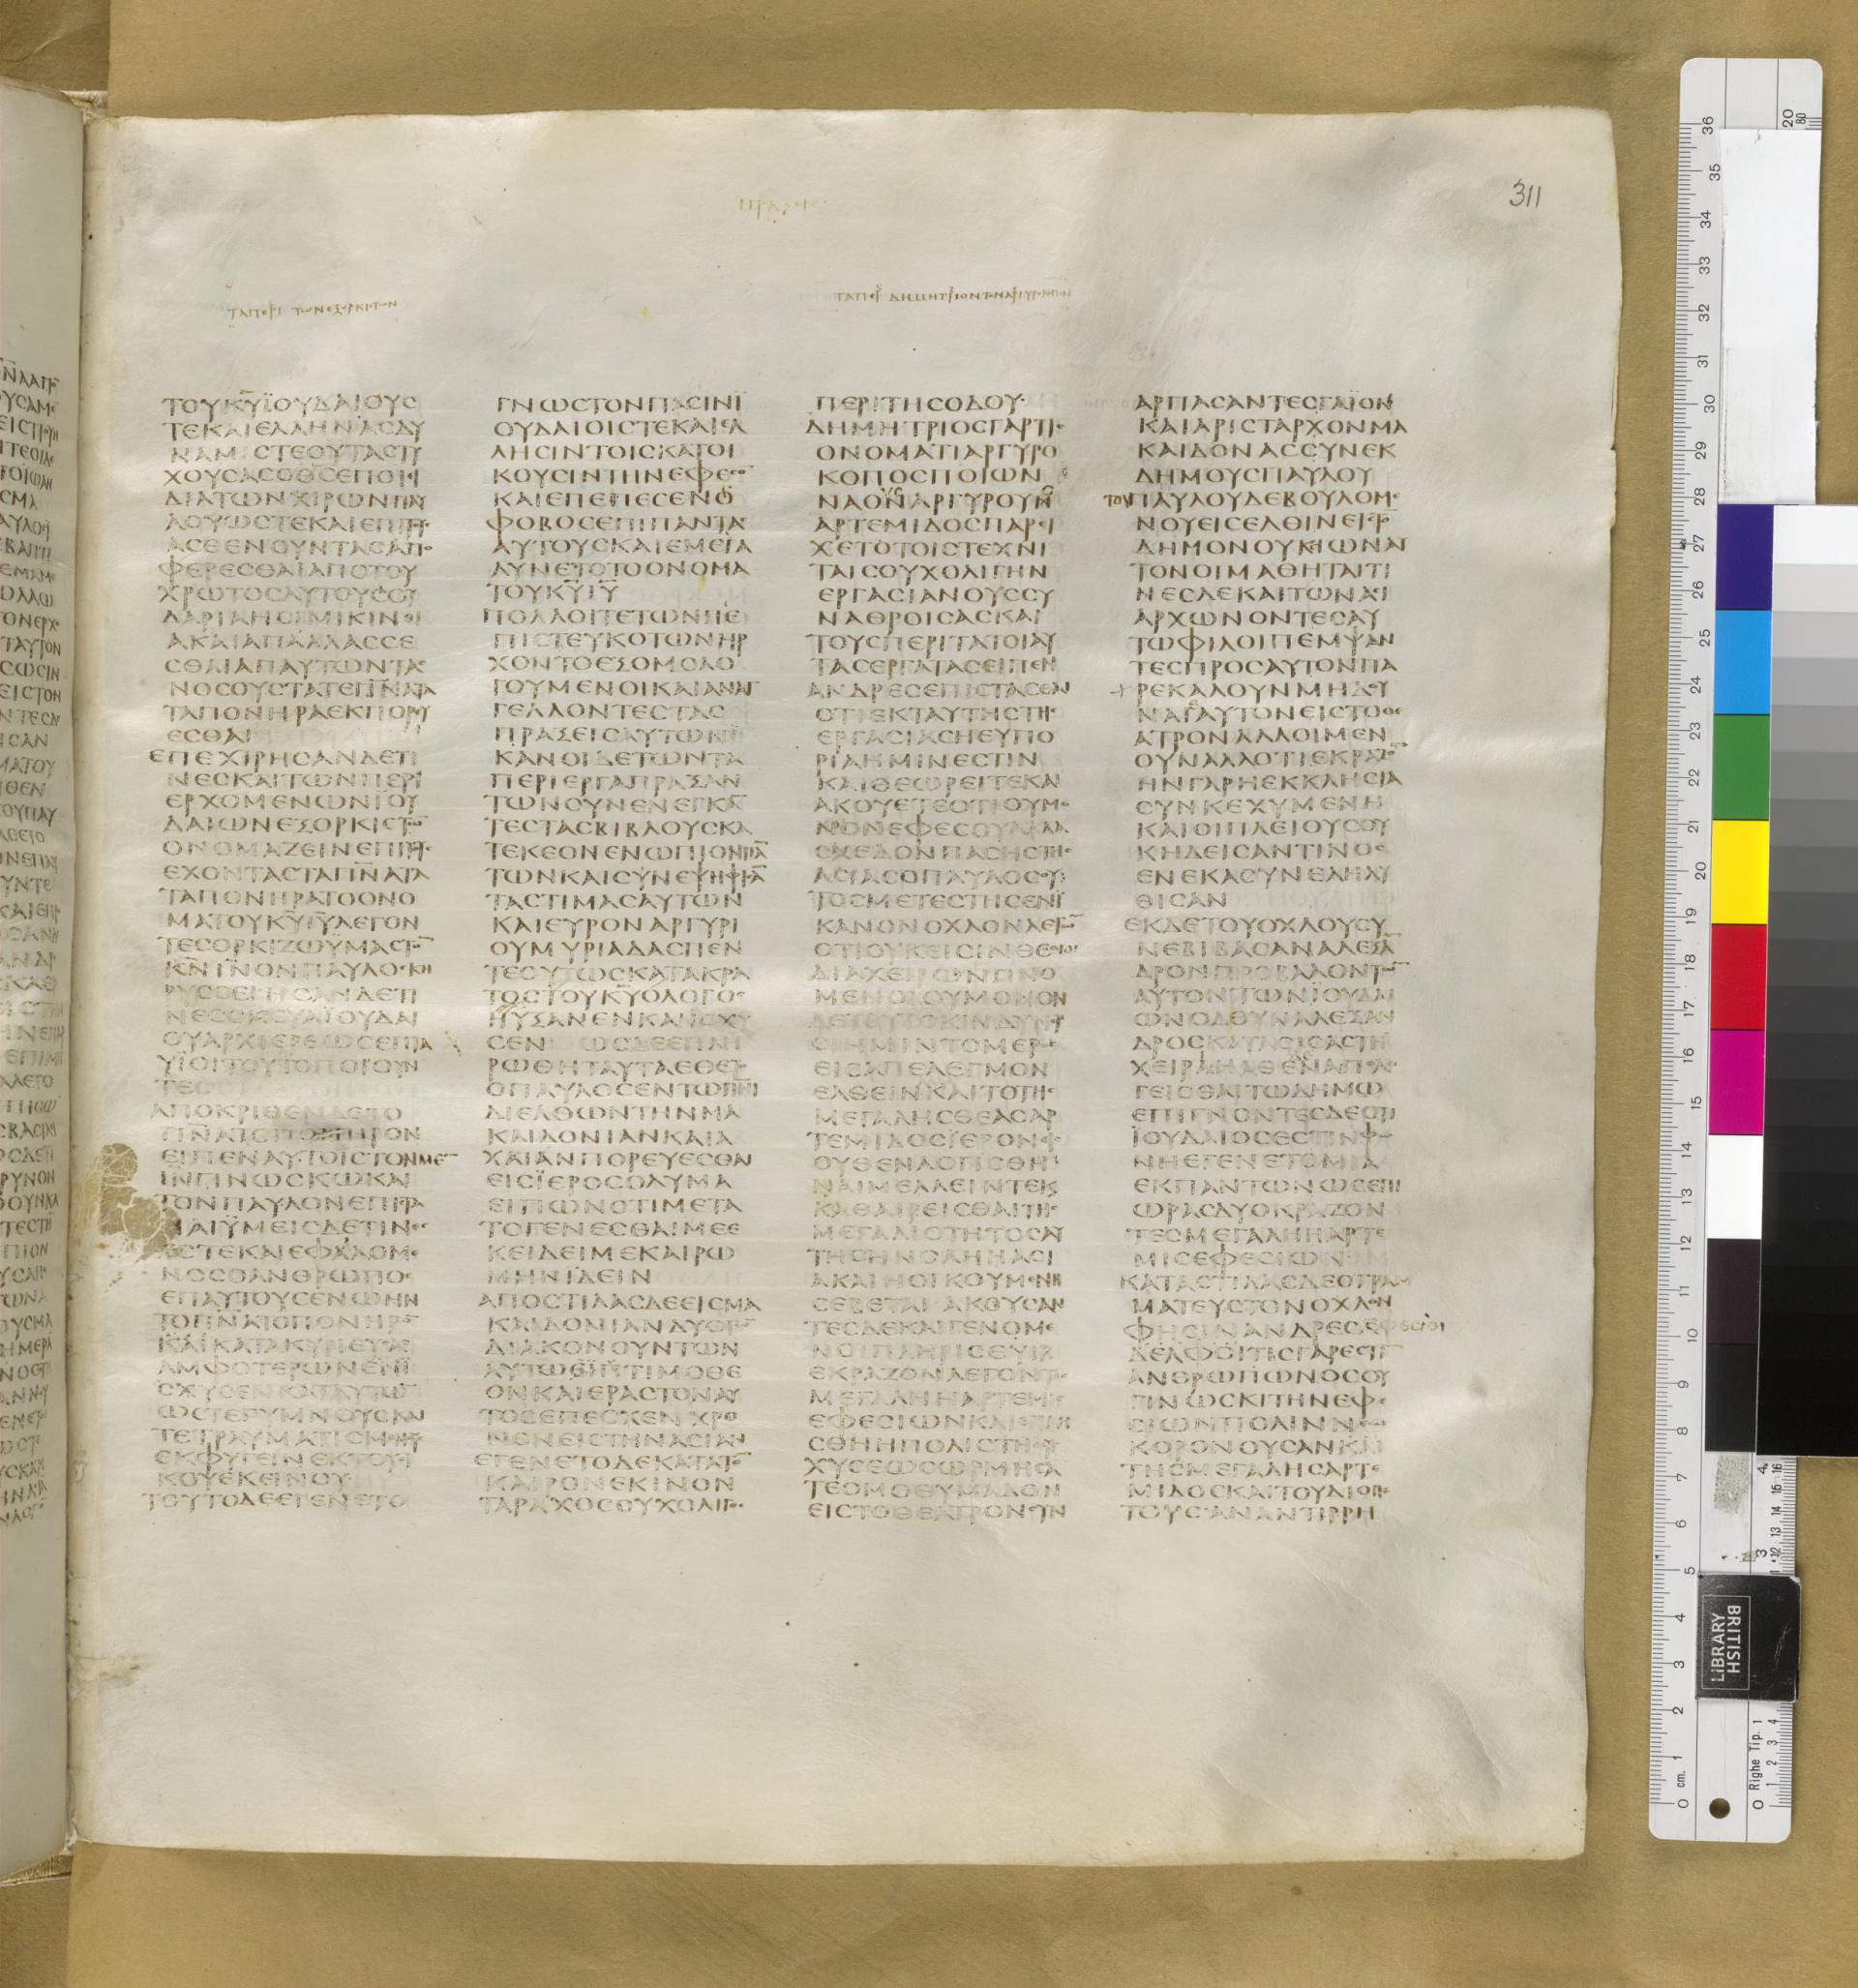 ΠΡΑΞΕΙΣ
311
ΤΑ ΠΕΡΙ ΤΩΝ ΕΞΟΡΚΙΣΤΩΝ
ΤΟΥΚΥΪΟΥΔΑΙΟΥϹ
ΤΕΚΑΙΕΛΛΗΝΑϹΔΥ
ΝΑΜΙϹΤΕΟΥΤΑϹΤΥ
ΧΟΥϹΑϹΟΘϹΕΠΟΙΕΙ
ΔΙΑΤΩΝΧΙΡΩΝΠΑΥ
ΛΟΥΩϹΤΕΚΑΙΕΠΙΤΟΥ
ΑϹΘΕΝΟΥΝΤΑϹΑΠΟ
ΦΕΡΕϹΘΑΙΑΠΟΤΟΥ
ΧΡΩΤΟϹΑΥΤΟΥϹΟΥ
ΔΑΡΙΑΗϹΙΜΙΚΙΝΘΙ
ΑΚΑΙΑΠΑΛΛΑϹϹΕ
ϹΘΑΙΑΠΑΥΤΩΝΤΑϹ
ΝΟϹΟΥϹΤΑΤΕΠΝΑΤΑ
ΤΑΠΟΝΗΡΑΕΚΠΟΡΕΥ
ΕϹΘΑΙ
ΕΠΕΧΙΡΗϹΑΝΔΕΤΙ
ΝΕϹΚΑΙΤΩΝΠΕΡΙ
ΕΡΧΟΜΕΝΩΝΪΟΥ
ΔΑΙΩΝΕΞΟΡΚΙϹΤΩ
ΟΝΟΜΑΖΕΙΝΕΠΙΤΟΥϹ
ΕΧΟΝΤΑϹΤΑΠΝΑΤΑ
ΤΑΠΟΝΗΡΑΤΟΟΝΟ
ΜΑΤΟΥΚΥΙΥΛΕΓΟΝ
ΤΕϹΟΡΚΙΖΩΫΜΑϹΤΟ
ΚΝΙΝΟΝΠΑΥΛΟϹΚΗ
ΡΥϹϹΕΙΗϹΑΝΔΕΤΙ
ΝΕϹϹΚΕΥΑΪΟΥΔΑΙ
ΟΥΑΡΧΙΕΡΕΩϹΕΠΤΑ
ΫΙΟΙΤΟΥΤΟΠΟΙΟΥΝ
ΤΕϹ
ΑΠΟΚΡΙΘΕΝΔΕΤΟ
ΠΝΑΤΟΠΟΝΗΡΟΝ
ΕΙΠΕΝΑΥΤΟΙϹΤΟΝΜΕ
ΙΝΓΙΝΩϹΚΩΚΑΙ
ΤΟΝΠΑΥΛΟΝΕΠΙϹΤΑ
ΜΑΙΫΜΕΙϹΔΕΤΙΝΕϹ
ΕϹΤΕΚΑΙΕΦΑΛΟΜΕ
ΝΟϹΟΑΝΘΡΩΠΟϹ
ΕΠΑΥΤΟΥϹΕΝΩΗΝ
ΤΟΠΝΑΤΟΠΟΝΗΡΟ
ΚΑΙΚΑΤΑΚΥΡΙΕΥϹΑϹ
ΑΜΦΟΤΕΡΩΝΕΝΙ
ϹΧΥϹΕΝΚΑΤΑΥΤΩ
ΩϹΤΕΓΥΜΝΟΥϹΚΑΙ
ΤΕΤΡΑΥΜΑΤΙϹΜΕΝΟΥϹ
ΕΚΦΥΓΕΙΝΕΚΤΟΥΟΙ
ΚΟΥΕΚΕΙΝΟΥ
ΤΟΥΤΟΔΕΕΓΕΝΕΤΟ
ΓΝΩϹΤΟΝΠΑϹΙΝΪ
ΟΥΔΑΙΟΙϹΤΕΚΑΙΕΛ
ΛΗϹΙΝΤΟΙϹΚΑΤΟΙ
ΚΟΥϹΙΝΤΗΝΕΦΕϹΟ
ΚΑΙΕΠΕΠΕϹΕΝΟ
ΦΟΒΟϹΕΠΙΠΑΝΤΑϹ
ΑΥΤΟΥϹΚΑΙΕΜΕΓΑ
ΛΥΝΕΤΟΤΟΟΝΟΜΑ
ΤΟΥΚΥΙΥ
ΠΟΛΛΟΙΤΕΤΩΝΠΕ
ΠΙϹΤΕΥΚΟΤΩΝΗΡ
ΧΟΝΤΟΕΞΟΜΟΛΟ
ΓΟΥΜΕΝΟΙΚΑΙΑΝΑΓ
ΓΕΛΛΟΝΤΕϹΤΑϹ
ΠΡΑΞΕΙϹΑΥΤΩΝ
ΚΑΝΟΙΔΕΤΩΝΤΑ
ΠΕΡΙΕΡΓΑΠΡΑΞΑΝ
ΤΩΝΟΥΝΕΝΕΓΚΑ
ΤΕϹΤΑϹΒΙΒΛΟΥϹΚΑ
ΤΕΚΕΟΝΕΝΩΠΙΟΝΠΑ
ΤΩΝΚΑΙϹΥΝΕΨΗΦΙϹΑ
ΤΑϹΤΙΜΑϹΑΥΤΩΝ
ΚΑΙΕΥΡΟΝΑΡΓΥΡΙ
ΟΥΜΥΡΙΑΔΑϹΠΕΝ
ΤΕΟΥΤΩϹΚΑΤΑΚΡΑ
ΤΟϹΤΟΥΚΥΟΛΟΓΟϹ
ΗΥΞΑΝΕΝΚΑΙΪϹΧΥ
ϹΕΝ ΩϹΔΕΕΠΛΗ
ΡΩΘΗΤΑΥΤΑΕΘΕΤΟ
ΟΠΑΥΛΟϹΕΝΤΩΠΝΙ
ΔΙΕΛΘΩΝΤΗΝΜΑ
ΚΑΙΔΟΝΙΑΝΚΑΙΑ
ΧΑΙΑΝΠΟΡΕΥΕϹΘΑΙ
ΕΙϹΪΕΡΟϹΟΛΥΜΑ
ΕΙΠΩΝΟΤΙΜΕΤΑ
ΤΟΓΕΝΕϹΘΑΙΜΕΕ
ΚΕΙΔΕΙΜΕΚΑΙΡΩ
ΜΗΝΪΔΕΙΝ
ΑΠΟϹΤΙΛΑϹΔΕΕΙϹΜΑ
ΚΑΙΔΟΝΙΑΝΔΥΟΤΩ
ΔΙΑΚΟΝΟΥΝΤΩΝ
ΑΥΤΩΤΙΜΟΘΕ
ΟΝΚΑΙΕΡΑϹΤΟΝΑΥ
ΤΟϹΕΠΕϹΧΕΝΧΡΟ
ΝΟΝΕΙϹΤΗΝΑϹΙΑΝ
ΕΓΕΝΕΤΟΔΕΚΑΤΑΤΟ
ΚΑΙΡΟΝΕΚΙΝΟΝ
ΤΑΡΑΧΟϹΟΥΧΟΛΙΓΟϹ
ΤΑ ΠΕΡΙ ΔΗΜΗΤΡΙΟΝ ΤΟΝ ΑΡΓΥΡΟΚΟΠΟΝ
ΠΕΡΙΤΗϹΟΔΟΥ
ΔΗΜΗΤΡΙΟϹΓΑΡΤΙϹ
ΟΝΟΜΑΤΙΑΡΓΥΡΟ
ΚΟΠΟϹΠΟΙΩΝ
ΝΑΟΝΑΡΓΥΡΟΥΝ
ΑΡΤΕΜΙΔΟϹΠΑΡΕΙ
ΧΕΤΟΤΟΙϹΤΕΧΝΙ
ΤΑΙϹΟΥΧΟΛΙΓΗΝ
ΕΡΓΑϹΙΑΝΟΥϹϹΥ
ΝΑΘΡΟΙϹΑϹΚΑΙ
ΤΟΥϹΠΕΡΙΤΑΤΟΙΑΥ
ΤΑΕΡΓΑΤΑϹΕΙΠΕΝ
ΑΝΔΡΕϹΕΠΙϹΤΑϹΘΑΙ
ΟΤΙΕΚΤΑΥΤΗϹΤΗϹ
ΕΡΓΑϹΙΑϹΗΕΥΠΟ
ΡΙΑΗΜΙΝΕϹΤΙΝ
ΚΑΙΘΕΩΡΕΙΤΕΚΑΙ
ΑΚΟΥΕΤΕΟΤΙΟΥΜΟ
ΝΟΝΕΦΕϹΟΥΑΛΛΑ
ϹΧΕΔΟΝΠΑϹΗϹΤΗϹ
ΑϹΙΑϹΟΠΑΥΛΟϹΟΥ
ΤΟϹΜΕΤΕϹΤΗϹΕΝΪ
ΚΑΝΟΝΟΧΛΟΝΛΕΓΩ
ΟΤΙΟΥΚΕΙϹΙΝΘΕΟΙΟΙ
ΔΙΑΧΕΙΡΩΝΓΙΝΟ
ΜΕΝΟΙΟΥΜΟΝΟΝ
ΔΕΤΟΥΤΟΚΙΝΔΥΝΕΥ
ΕΙΗΜΙΝΤΟΜΕΡΟϹ
ΕΙϹΑΠΕΛΕΓΜΟΝ
ΕΛΘΕΙΝΚΑΙΤΟΤΗϹ
ΜΕΓΑΛΗϹΘΕΑϹΑΡ
ΤΕΜΙΔΟϹΪΕΡΟΝΕΙϹ
ΟΥΘΕΝΛΟΓΙϹΘΗ
ΝΑΙΜΕΛΛΕΙΝΤΕΚΑΙ
ΚΑΘΑΙΡΕΙϹΘΑΙΤΗϹ
ΜΕΓΑΛΙΟΤΗΤΟϹΑΥ
ΤΗϹΗΝΟΛΗΗΑϹΙ
ΑΚΑΙΗΟΙΚΟΥΜΕΝΗ
ϹΕΒΕΤΑΙ ΑΚΟΥϹΑΝ
ΤΕϹΔΕΚΑΙΓΕΝΟΜΕ
ΝΟΙΠΛΗΡΙϹΘΥΜΟΥ
ΕΚΡΑΖΟΝΛΕΓΟΝΤΕϹ
ΜΕΓΑΛΗΗΑΡΤΕΜΙϹ
ΕΦΕϹΙΩΝΚΑΙΕΠΛΗ
ϹΘΗΗΠΟΛΙϹΤΗϹϹΥ
ΧΥϹΕΩϹΩΡΜΗϹΑ
ΤΕΟΜΟΘΥΜΑΔΟΝ
ΕΙϹΤΟΘΕΑΤΡΟΝϹΥΝ
ΑΡΠΑϹΑΝΤΕϹΓΑΪΟΝ
ΚΑΙΑΡΙϹΤΑΡΧΟΝΜΑ
ΚΑΙΔΟΝΑϹϹΥΝΕΚ
ΔΗΜΟΥϹΠΑΥΛΟΥ
ΤΟΥΠΑΥΛΟΥΔΕΒΟΥΛΟΜΕ
ΝΟΥΕΙϹΕΛΘΙΝΕΙϹΤΟ
ΔΗΜΟΝΟΥΚΙΩΝΑΥ
ΤΟΝΟΙΜΑΘΗΤΑΙΤΙ
ΝΕϹΔΕΚΑΙΤΩΝΑϹΙ
ΑΡΧΩΝΟΝΤΕϹΑΥ
ΤΩΦΙΛΟΙΠΕΜΨΑΝ
ΤΕϹΠΡΟϹΑΥΤΟΝΠΑ
ΡΕΚΑΛΟΥΝΜΗΔΟΥ
ΝΑΙΑΥΤΟΝΕΙϹΤΟΘΕ
ΑΤΡΟΝΑΛΛΟΙΜΕΝ
ΟΥΝΑΛΛΟΤΙΕΚΡΑΖΟ
ΗΝΓΑΡΗΕΚΚΛΗϹΙΑ
ϹΥΝΚΕΧΥΜΕΝΗ
ΚΑΙΟΙΠΛΕΙΟΥϹΟΥ
ΚΗΔΕΙϹΑΝΤΙΝΟϹ
ΕΝΕΚΑϹΥΝΕΛΗΛΥ
ΘΙϹΑΝ
ΕΚΔΕΤΟΥΟΧΛΟΥϹΥ
ΝΕΒΙΒΑϹΑΝΑΛΕΞΑ
ΔΡΟΝΠΡΟΒΑΛΟΝΤΩ
ΑΥΤΟΝΤΩΝΪΟΥΔΑΙ
ΩΝΟΔΟΥΝΑΛΕΞΑΝ
ΔΡΟϹΚΑΤΑϹΙϹΑϹΤΗ
ΧΕΙΡΑΗΘΕΛΕΝΑΠΟΛΟ
ΓΕΙϹΘΑΙΤΩΔΗΜΩ
ΕΠΙΓΝΟΝΤΕϹΔΕΟΤΙ
ΪΟΥΔΑΙΟϹΕϹΤΙΝΦΩ
ΝΗΕΓΕΝΕΤΟΜΙΑ
ΕΚΠΑΝΤΩΝΩϹΕΠΙ
ΩΡΑϹΔΥΟΚΡΑΖΟΝ
ΤΕϹΜΕΓΑΛΗΗΑΡΤΕ
ΜΙϹΕΦΕϹΙΩΝ
ΚΑΤΑϹΤΙΛΑϹΔΕΟΓΡΑΜ
ΜΑΤΕΥϹΤΟΝΟΧΛΟΝ
ΦΗϹΙΝΑΝΔΡΕϹΕΦΕϹΙΟΙ
ΔΕΛΦΟΙΤΙϹΓΑΡΕϹΤΙ
ΑΝΘΡΩΠΩΝΟϹΟΥ
ΓΙΝΩϹΚΙΤΗΝΕΦΕ
ϹΙΩΝΠΟΛΙΝΝΕΩ
ΚΟΡΟΝΟΥϹΑΝ
ΤΗϹΜΕΓΑΛΗϹΑΡΤΕ
ΜΙΔΟϹΚΑΙΤΟΥΔΙΟΠΕ
ΤΟΥϹΑΝΑΝΤΙΡΡΗ
BRITISH
LIBRARY
0 cm. 1 2 3 4 5 6 7 8 9 10 11 12 13 14 15 16 17 18 19 20 21 22 23 24 25 26 27 28 29 30 31 32 33 34 35 36
0 Righe Tip. 1